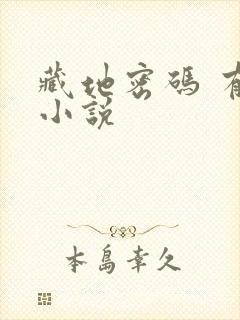 藏地密碼
小說
本島幸久